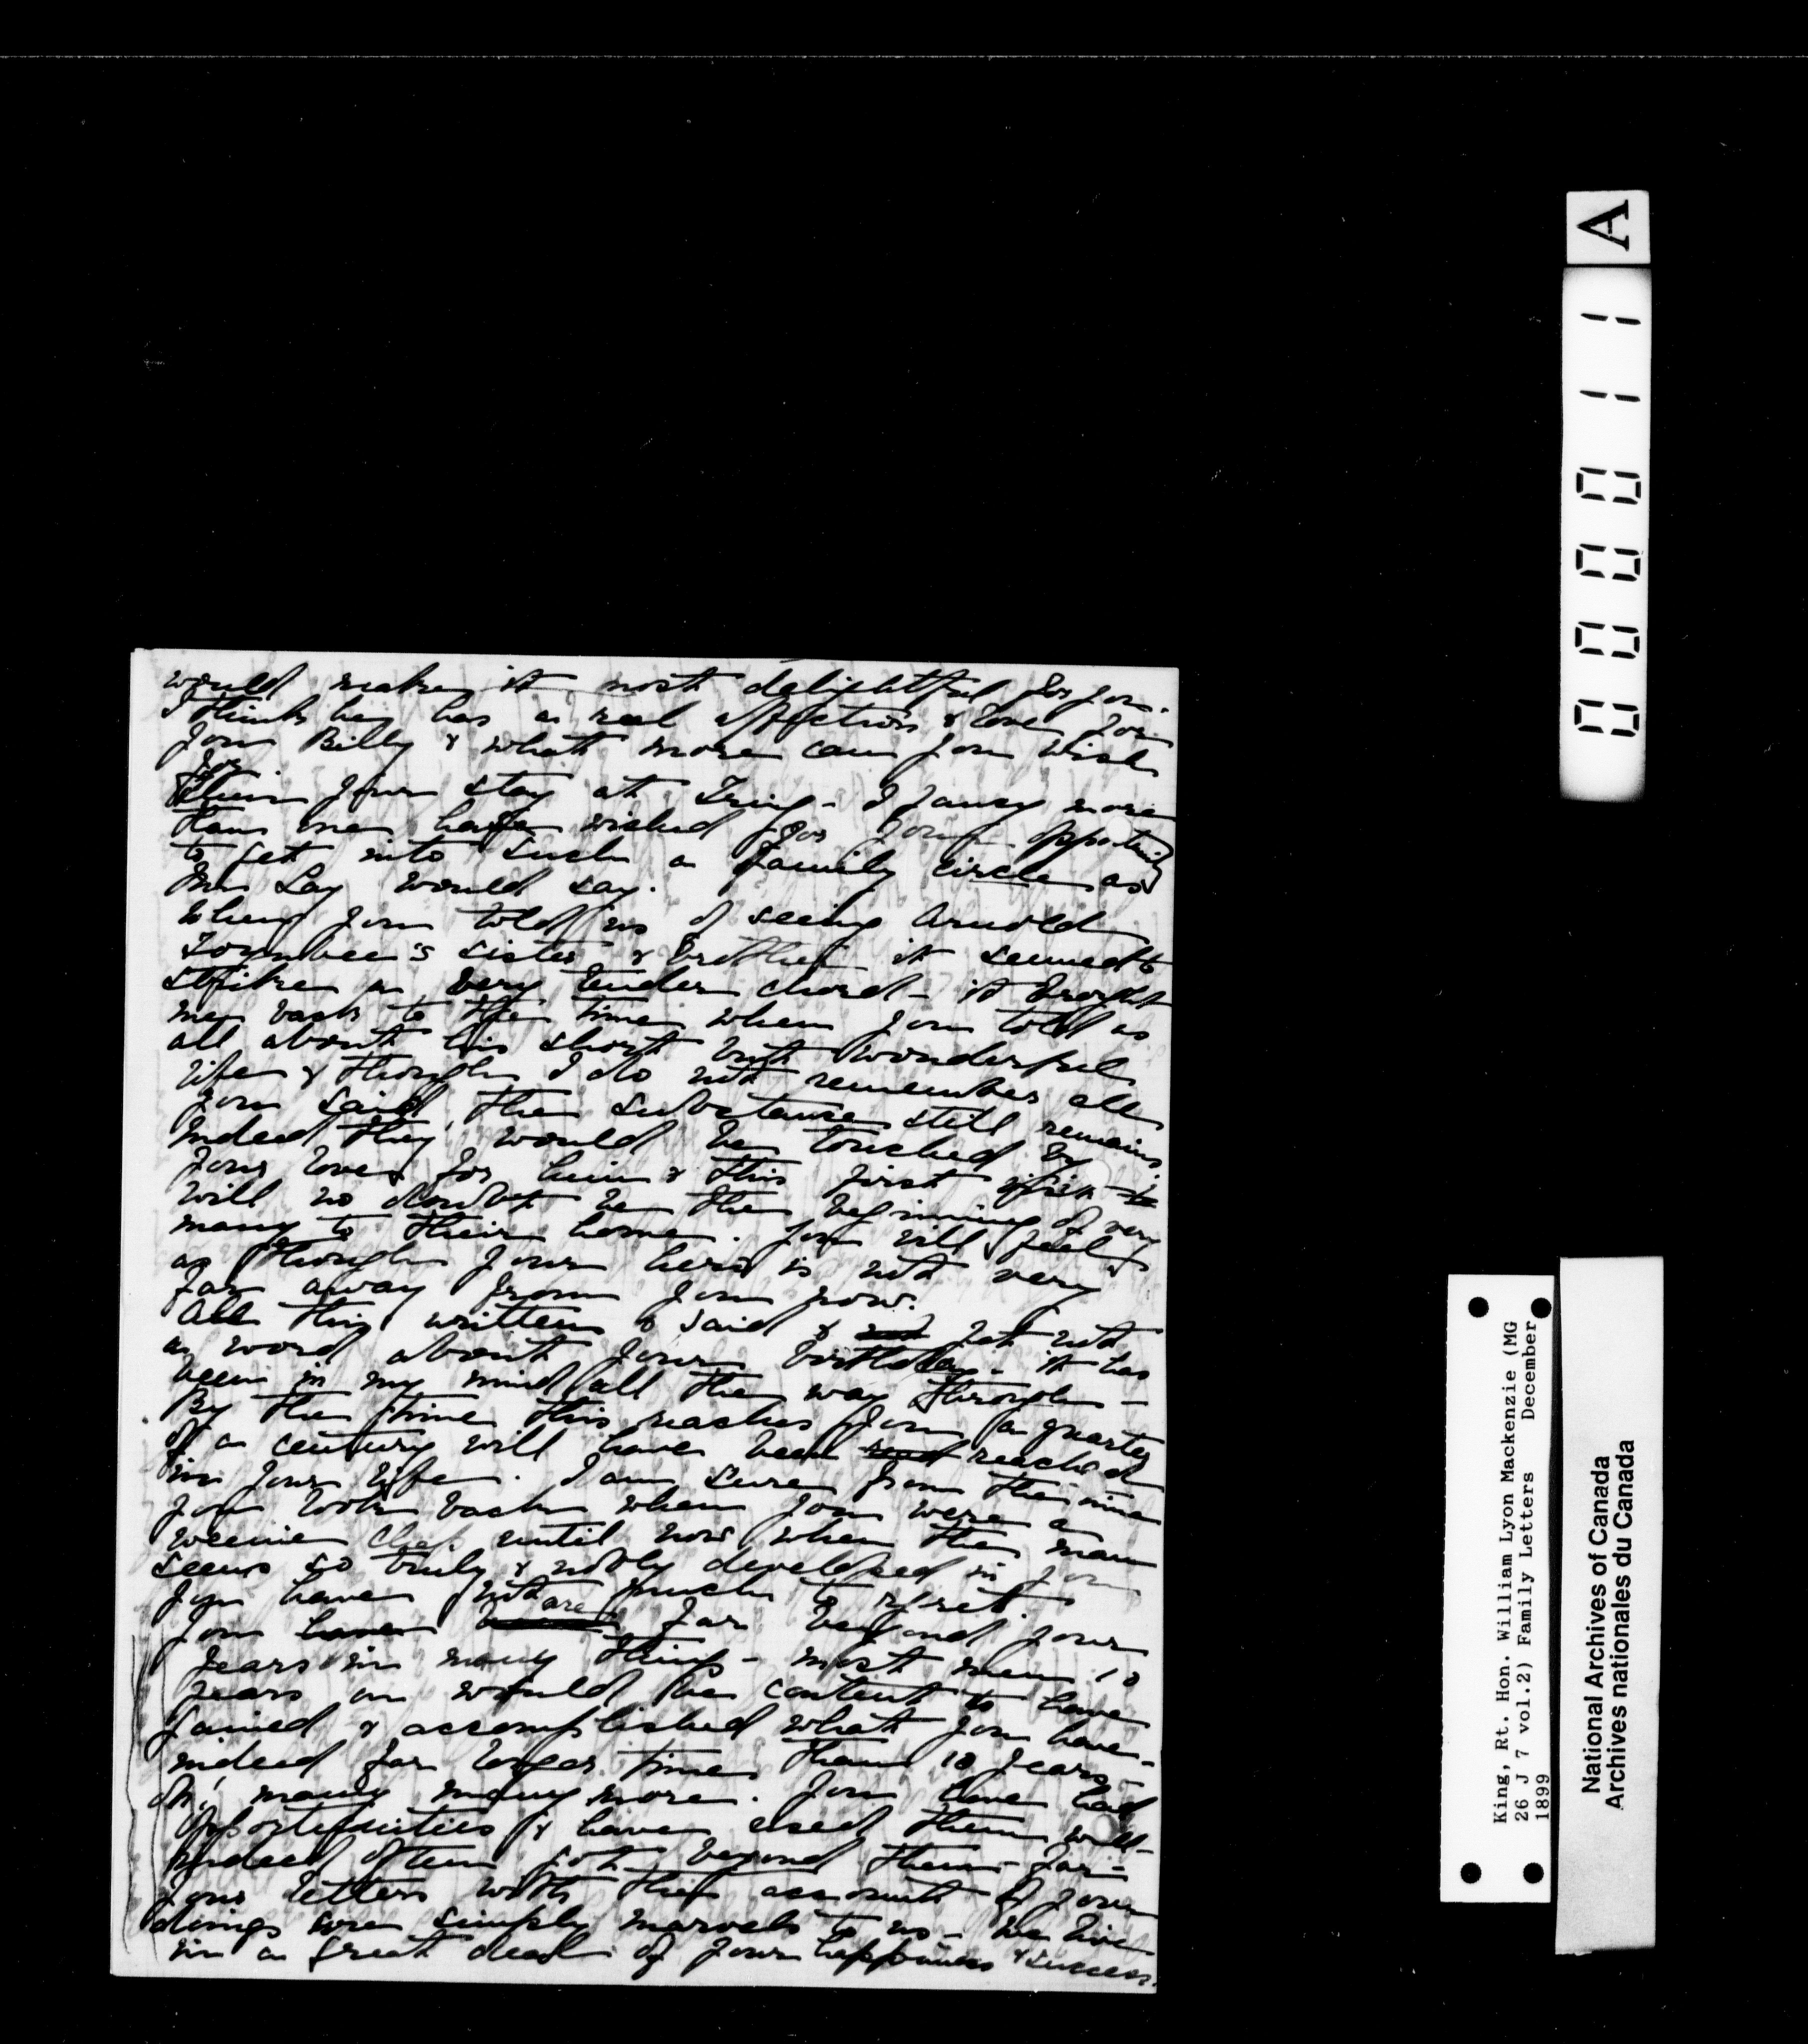 would make it most delightful for you.
I think he has a real affection & love for
you Billy & what more can you wish
for
than your stay at Tring - I fancy more
than one have wished for your opportunity
to get into such a family circle as
Mrs Lay would say.
When you told us of seeing Arnold
Toynbee's sister & brother it seemed to
strike a very tender chord - it brought
me back to the time when you told us
all about his short but wonderful
life & though I do not remember all
you said, the substance still remains
Indeed they would be touched by
your love for him & this first visit
will no doubt be the beginning of very
many to their home. You will feel
as though your hero is not very
far away from you now.
All this written & said & yet not
a word about your birthday - it has
been in my mind all the way through -
By the time this reaches you a quarter
of a century will have been reached
in your life. I am sure from the time
you look back when you were a
weenie chap until now when the man
seems so truly & nobly developed in you
you have not much to regret.
are
You have far beyond your
years in many things - most men 10
years on would be content to have
gained & accomplished what you have -
indeed far longer time than 10 years -
Oh! many many more. You have had
opportunities & have used them well -
indeed often got beyond them - far -
Your letters with their account of your
doings are simply marvels to us - we live
in a great deal of your happiness & success.
A
000011
King, Rt. Hon. William Lyon Mackenzie (MG
26 J 7 vol.2) Family Letters December
1899
National Archives of Canada
Archives nationales du Canada